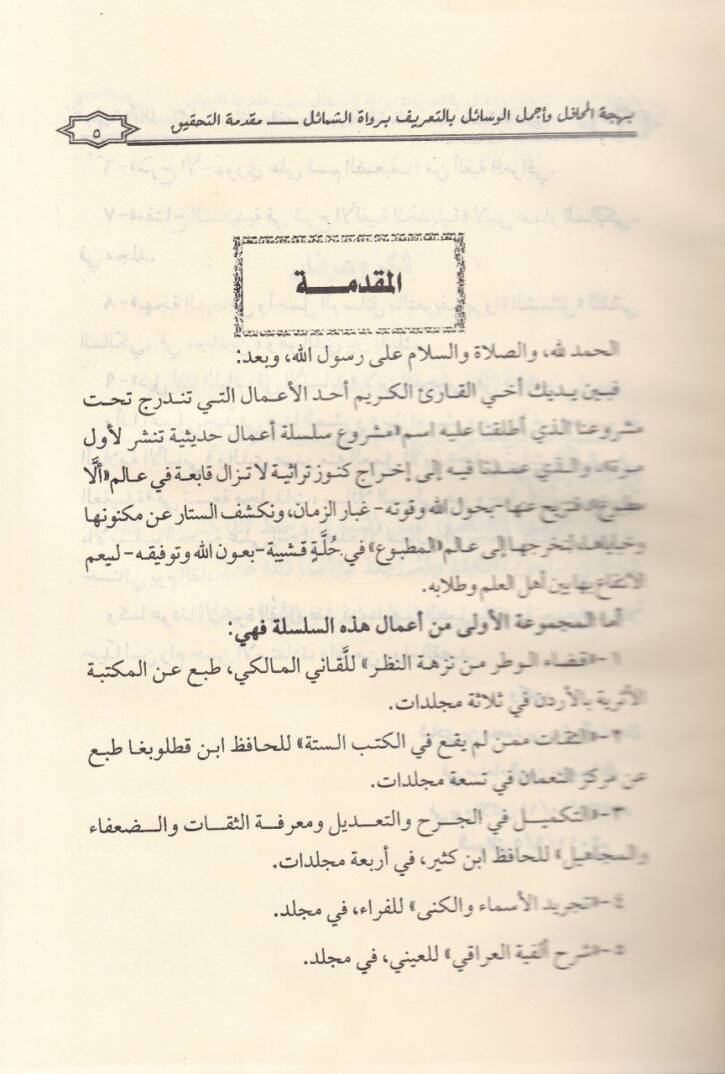 بهجة المحافل وأجمل الوسائل بالتعريف برواة الشمائل ـــــ مقدمة التحقيق
٥
المقدمـــــة
الحمد لله، والصلاة والسلام على رسول الله، وبعد:
فبين يديك أخي القارئ الكريم أحد الأعمال التي تندرج تحت
مشروعنا الذي أطلقنا عليه اسم «مشروع سلسلة أعمال حديثية تنشر لأول
مرة»، والذي عملنا فيه إلى إخراج كنوز تراثية لا تزال قابعة في عالم «ألَّا
مطبوع»، نزيح عنها -بحول الله وقوته- غبار الزمان، ونكشف الستار عن مكنونها
وخباياها، لنخرجها إلى عالم «المطبوع» في حُلَّةٍ قشيبة -بعون الله وتوفيقه- ليعم
الانتفاع بها بين أهل العلم وطلابه.
أما المجموعة الأولى من أعمال هذه السلسلة فهي:
١-«قضاء الوطر من نزهة النظر» للَّقاني المالكي، طبع عن المكتبة
الأثرية بالأردن في ثلاثة مجلدات.
٢-«الثقات ممن لم يقع في الكتب الستة» للحافظ ابن قطلوبغا طبع
عن مركز النعمان في تسعة مجلدات.
٣-«التكميل في الجرح والتعديل ومعرفة الثقات والضعفاء
والمجاهيل» للحافظ ابن كثير، في أربعة مجلدات.
٤-«تجريد الأسماء والكنى» للفراء، في مجلد.
٥-«شرح ألفية العراقي» للعيني، في مجلد.